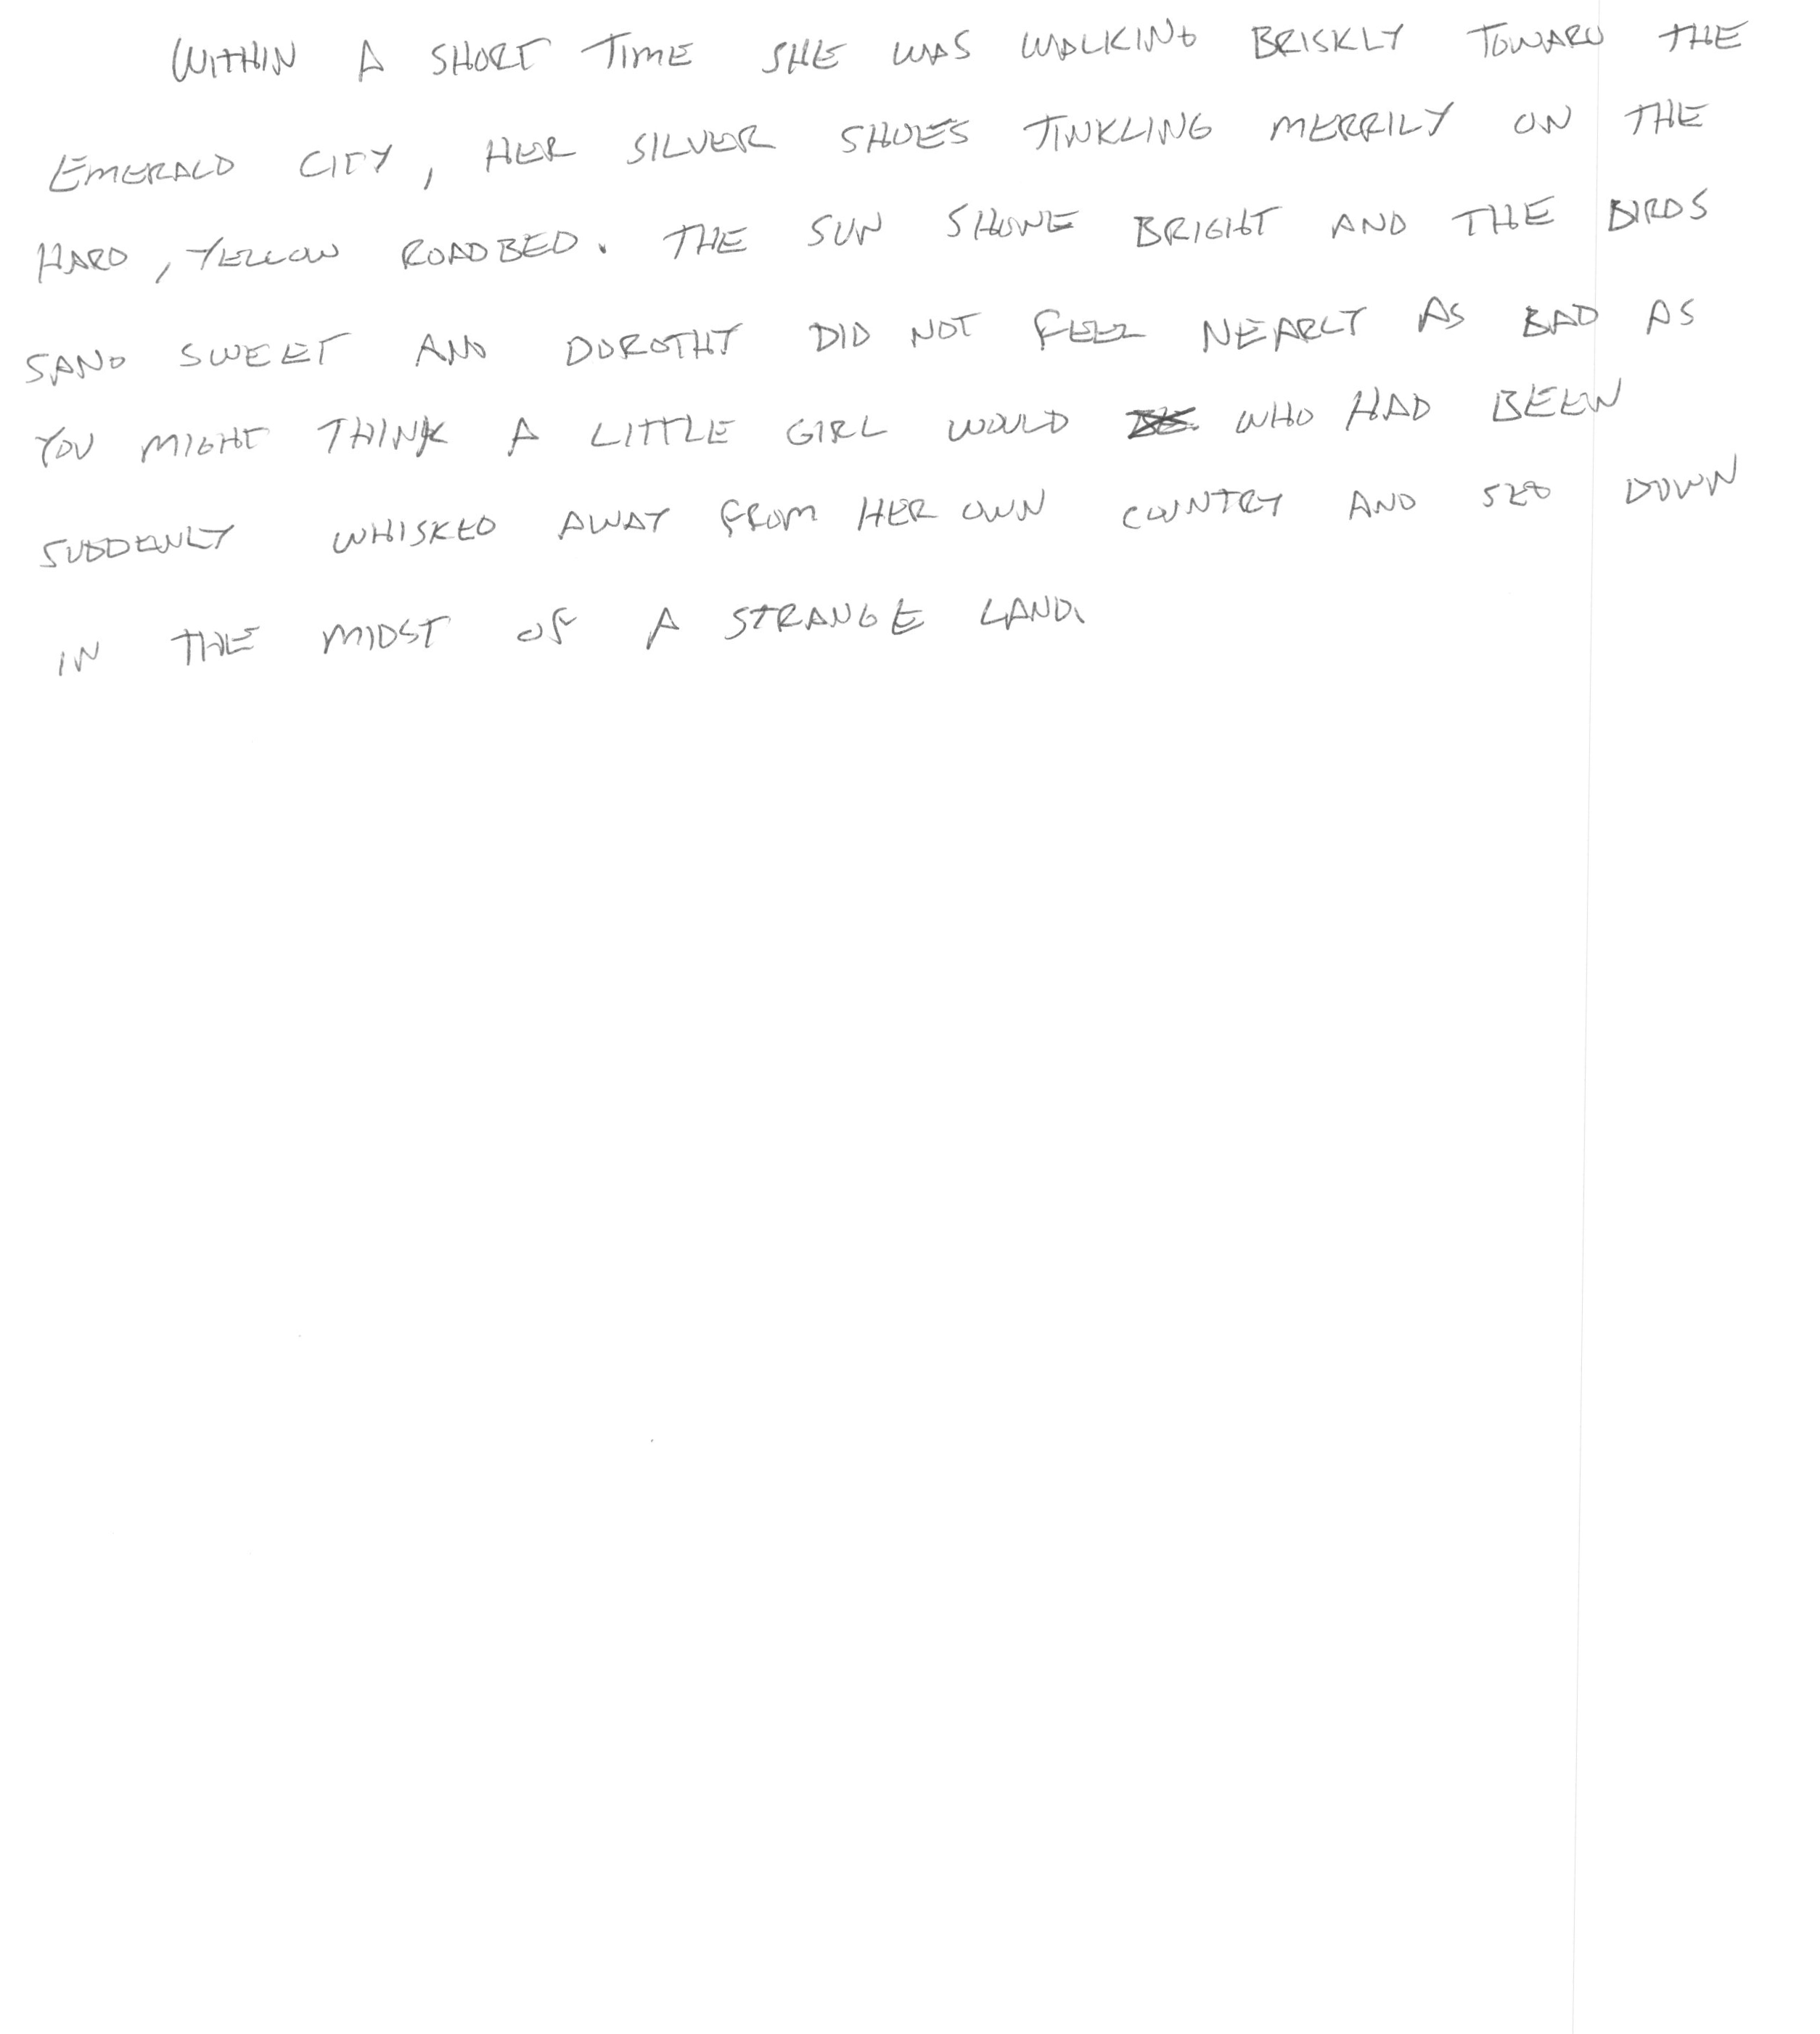 WITHIN A SHORT TIME SHE WAS WALKING BRISKLY TOWARD THE
EMERALD CITY, HER SILVER SHOES TINKLING MERRILY ON THE
HARD, YELLOW ROADBED. THE SUN SHONE BRIGHT AND THE BIRDS
SANG SWEET AND DOROTHY DID NOT FEEL NEARLY AS BAD AS
YOU MIGHT THINK A LITTLE GIRL WOULD WHO HAD BEEN
SUDDENLY WHISKED AWAY FROM HER OWN COUNTRY AND SET DOWN
IN THE MIDST OF A STRANGE LAND.